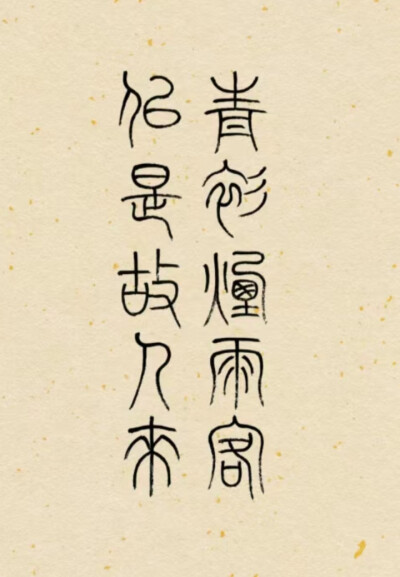 青衫煙雨客
似是故人來